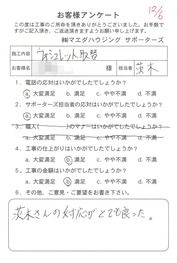 お客様アンケート
12/6
この度は工事のご用命を頂きありがとうございました。お手数で
すがご記入頂き、ご返送頂きますようお願い申し上げます。
㈱マエダハウジング サポーターズ
施工内容 ウォシュレット取替
お客様名 様 担当 茨木
1. 電話の応対はいかがでしたでしょうか?
a. 大変満足 b. 満足 c. やや不満 d. 不満
2. サポーターズ担当者の応対はいかがでしたでしょうか?
a. 大変満足 b. 満足 c. やや不満 d. 不満
3. 職人( )のマナーはいかがでしたでしょうか?
a. 大変満足 b. 満足 c. やや不満 d. 不満
4. 工事の仕上がりはいかがでしたでしょうか?
a. 大変満足 b. 満足 c. やや不満 d. 不満
5. 工事の金額はいかがでしたでしょうか?
a. 大変満足 b. 満足 c. やや不満 d. 不満
6. その他、ご意見・ご要望をお書き下さい。
茨木さんの対応がとても良った。